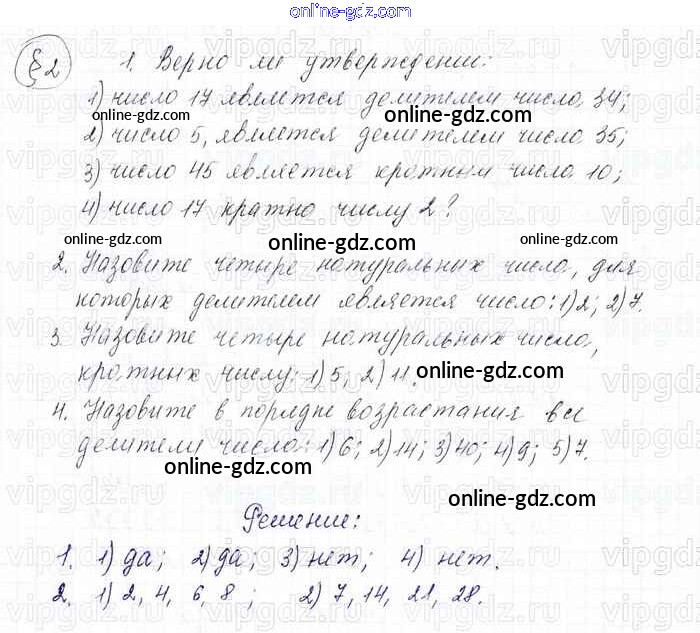 online-gdz.com
§2 1. Верно ли утверждении:
1) число 17 является делителем числа 34;
2) число 5, является делителем числа 35;
3) число 45 является кратным числа 10;
4) число 17 кратно числу 2?
online-gdz.com online-gdz.com online-gdz.com
2. Назовите четыре натуральных числа, для
которых делителем является число: 1) 2; 2) 7.
3. Назовите четыре натуральных числа,
кратных числу: 1) 5; 2) 11.
online-gdz.com
4. Назовите в порядке возрастания все
делители числа: 1) 6; 2) 14; 3) 40; 4) 9; 5) 7.
online-gdz.com
online-gdz.com
Решение:
1. 1) да; 2) да; 3) нет; 4) нет.
2. 1) 2, 4, 6, 8; 2) 7, 14, 21, 28.
online-gdz.com